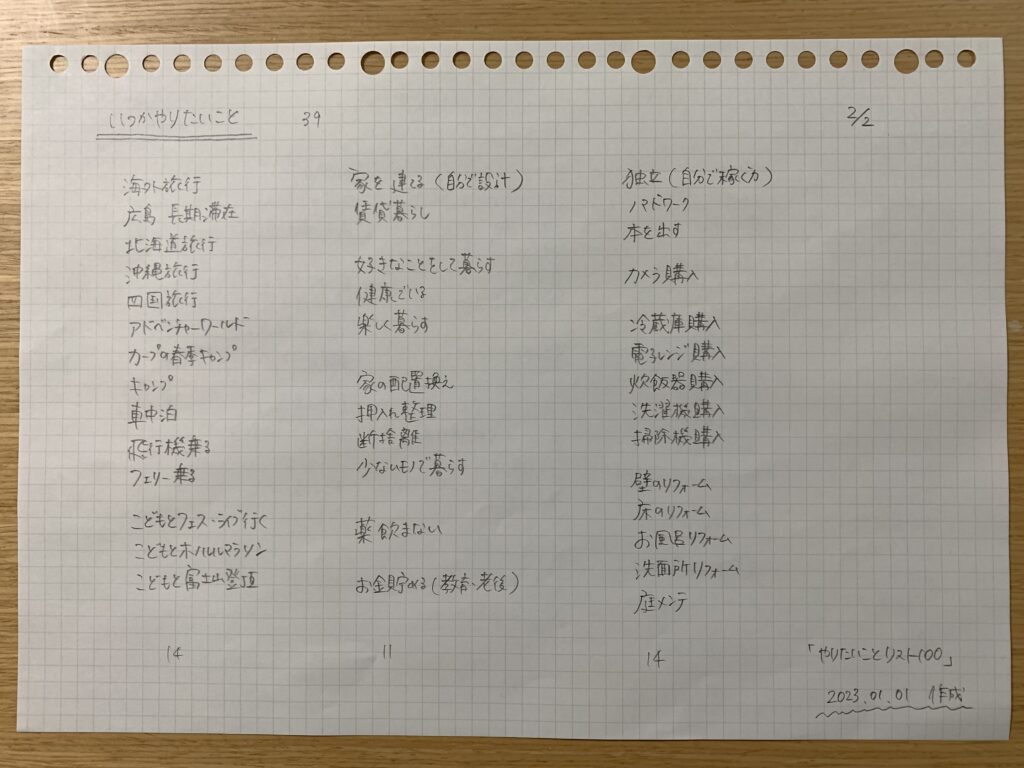 いつかやりたいこと 39
2/2
海外旅行
広島 長期滞在
北海道旅行
沖縄旅行
四国旅行
アドベンチャーワールド
カープの春季キャンプ
キャンプ
車中泊
飛行機乗る
フェリー乗る
こどもとフェス・ライブ行く
こどもとホノルルマラソン
こどもと富士山登頂
14
家を建てる(自分で設計)
賃貸暮らし
好きなことをして暮らす
健康でいる
楽しく暮らす
家の配置換え
押入れ整理
断捨離
少ないモノで暮らす
薬飲まない
お金貯める(教育・老後)
11
独立(自分で稼ぐ力)
ノマドワーク
本を出す
カメラ購入
冷蔵庫購入
電子レンジ購入
炊飯器購入
洗濯機購入
掃除機購入
壁のリフォーム
床のリフォーム
お風呂リフォーム
洗面所リフォーム
庭メンテ
14
「やりたいことリスト100」
2023.01.01 作成